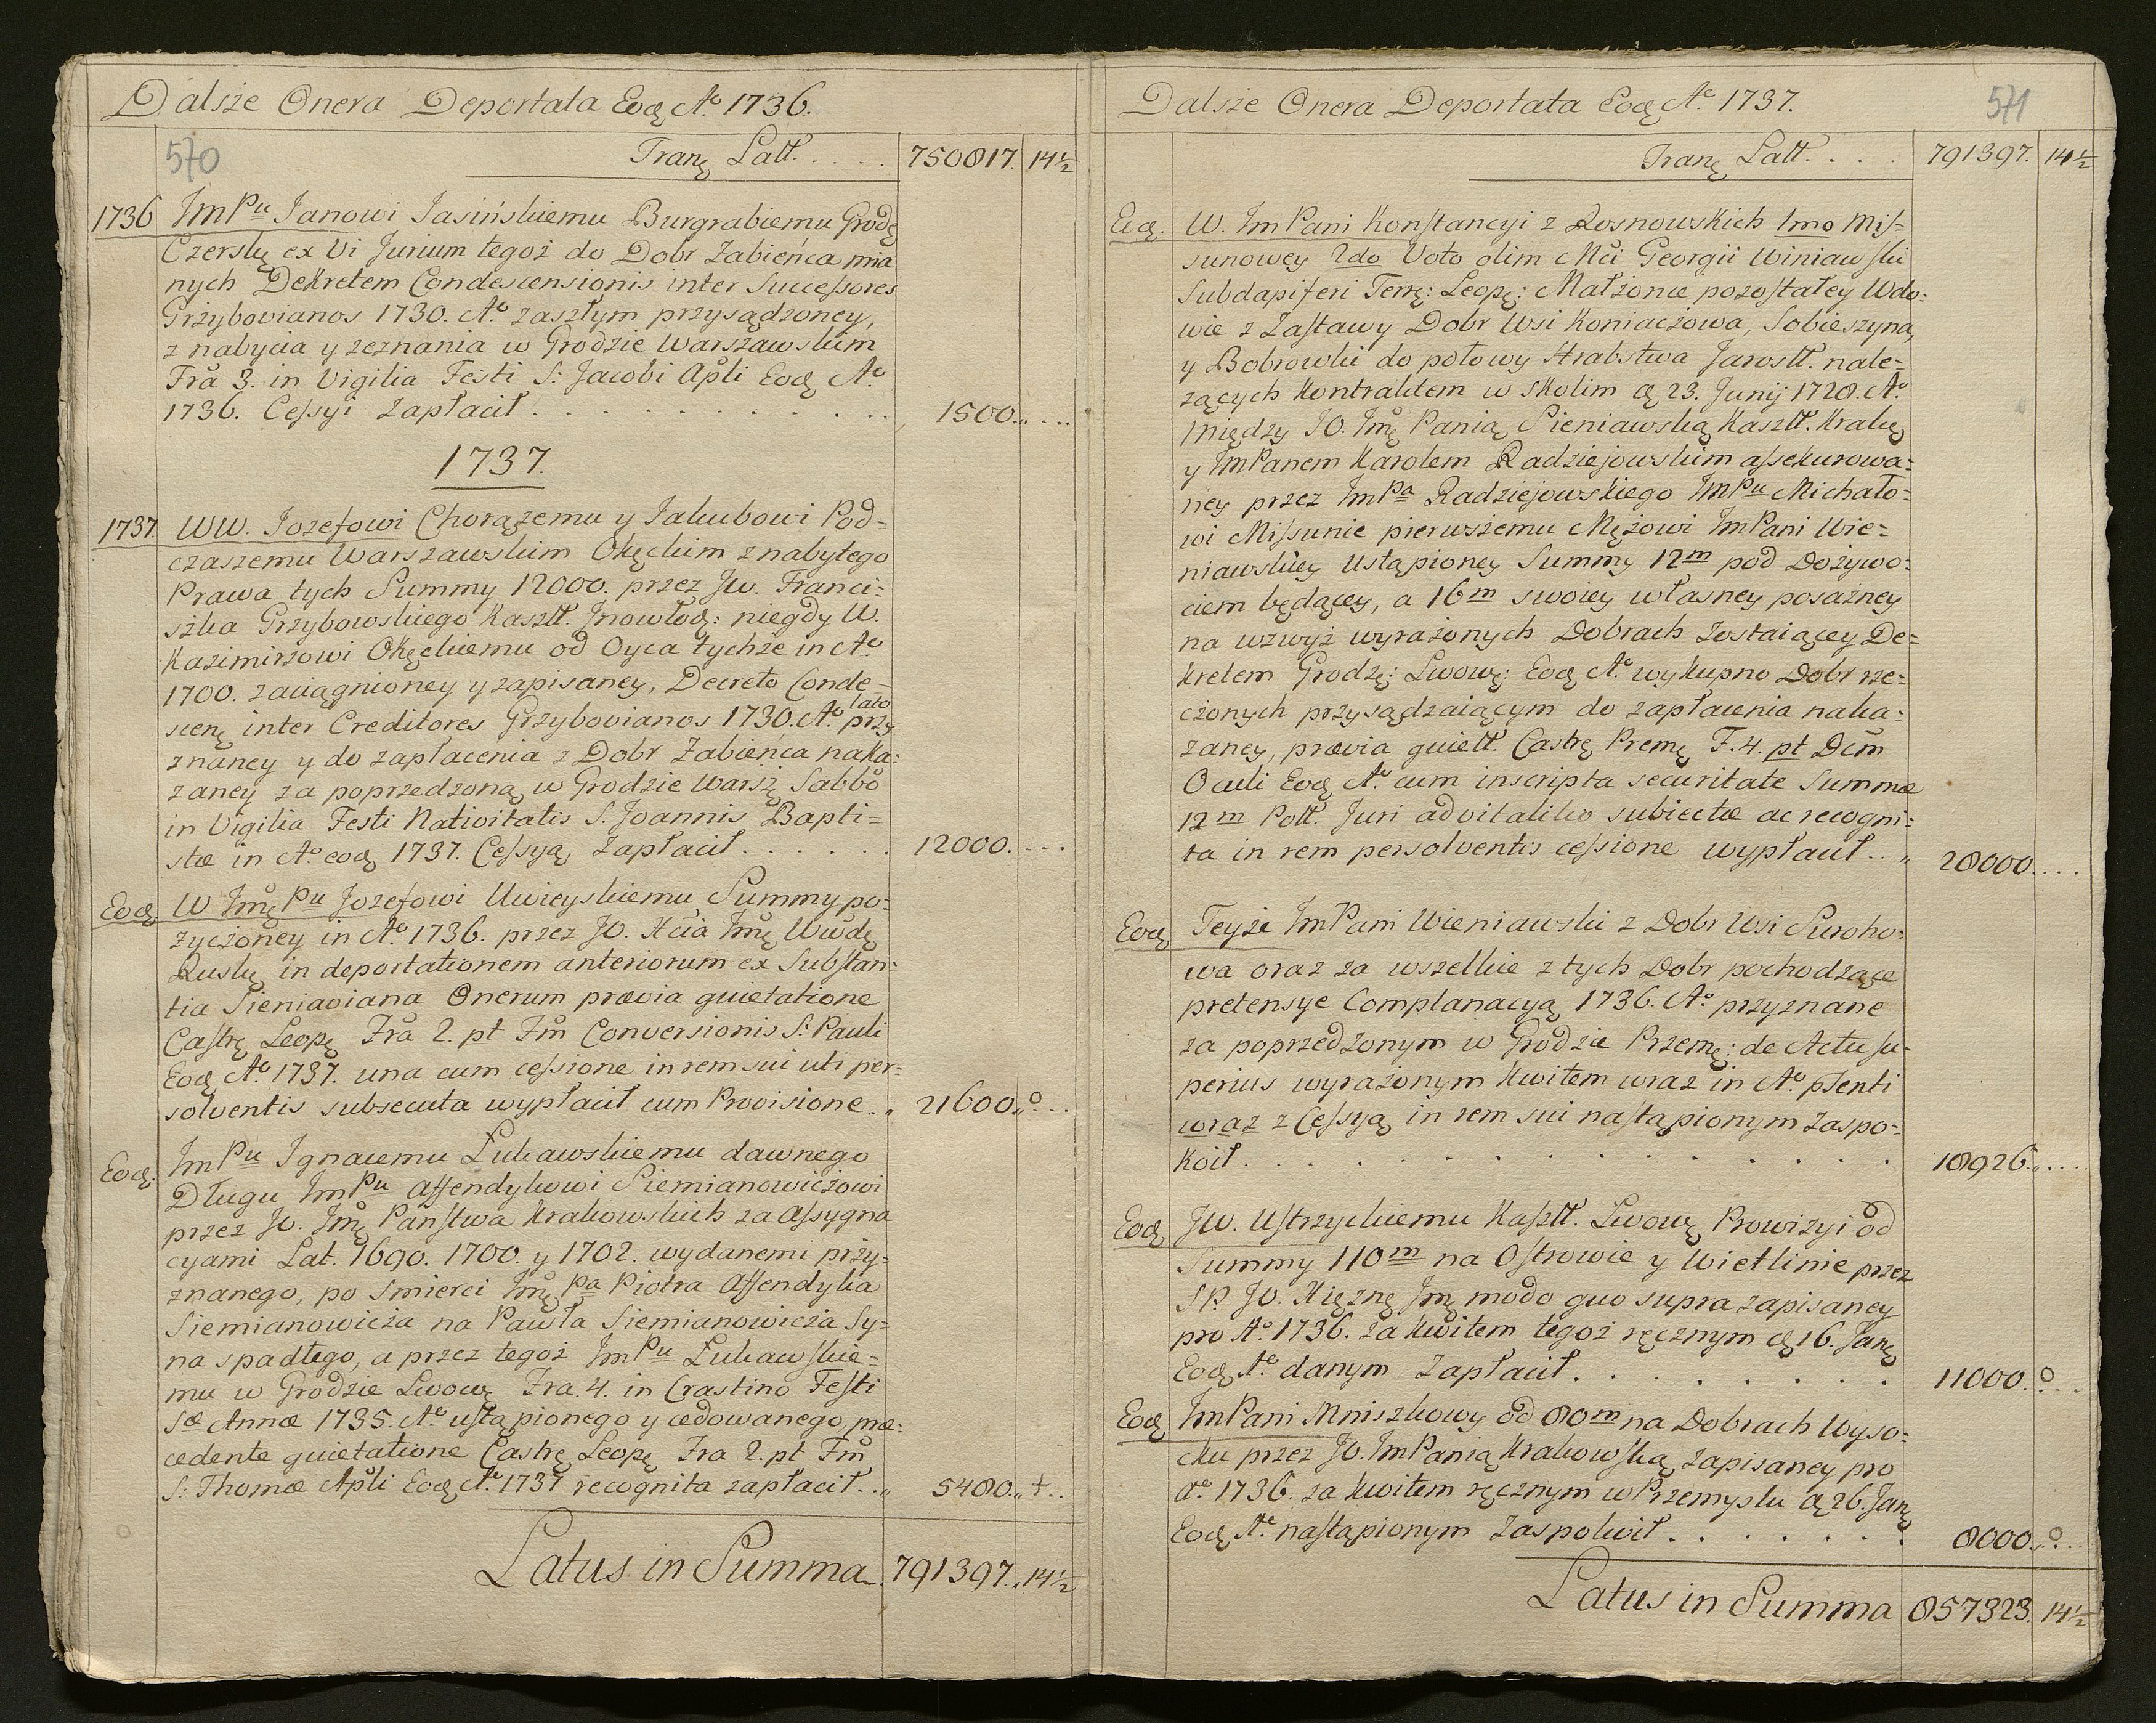 Dalsże Onera Deportata Eodę Aº 1736.
570
Tranę Latt. . . . . 750817. 14½
1736 JmPu Janowi Jasińskiemu Burgrabiemu Grodę
Czerskę ex Vi Jurium tegoż do Dobr Żabieńca mia
nych Dekretem Condescensionis inter Successores
Grżybovianos 1730. Aº zaszłym przysądzoney,
z nabycia y zeznania w Grodzie Warszawskim
Fra 3. in Vigilia Festi S: Jacobi Apli Eodę Aº
1736. Cessyi zapłacił . . . . . . . . . . . 1500.,, . . .
1737.
1737. WW. Jozefowi Chorążemu y Jakubowi Pod=
czaszemu Warszawskim Okęckim z nabytego
Prawa tych Summy 12000. przez Jw. Franci=
szka Grzybowskiego Kasztt. Jnowłodę: niegdy W.
Kazimirżowi Okęckiemu od Oyca tychże in Aº
1700. zaciągnioney y zapisaney, Decreto Conde=
scenę inter Creditores Grzybovianos 1730. Aº lato przy
znaney y do zapłacenia z Dobr Żabieńca naka=
zaney za poprzedzoną w Grodzie Warsżę Sabbo
in Vigilia Festi Nativitatis S. Joannis Bapti=
stæ in Aº eodę 1737. Cessyą, zapłacił . . . . . . 12000. . . .
Eodę W Jmę Pu Jozefowi Uwieyskiemu Summy po=
życżoney in Aº 1736. przez JO. Xcia Jmę Wwdę
Ruskę in deportationem anteriorum ex Substan=
tia Sieniaviana Onerum prævia quietatione
Castrę Leopę Fra 2. pt Fm Conversionis S: Pauli
Eodę Aº 1737. una cum cessione in rem sui uti per=
solventis subsecuta wypłacił cum Provisione.,, 21600.,,º. . .
Eodę. JmPu Jgnacemu Łukawskiemu dawnego
Długu JmPu Affendykowi Siemianowicżowi
przez Jw. Jmę Państwa Krakowskich za Assygna
cyami Lat. 1690. 1700. y 1702. wydanemi przy=
znanego, po smierci Jmę Pa Piotra Affendyka
Siemianowicża na Pawła Siemianowicża Sy=
na spadłego, a przez tegoż JmPu Łukawskie=
mu w Grodzie Lwowę Fra. 4. in Crastino Festi
Sæ Annæ 1735. Aº ustąpionego y cedowanego, præ=
cedente quietatione Castrę Leopę Fra 2. pt Fm
S: Thomæ Apli Eodę Aº 1737 recognita zapłacił. .,, 5480.,,+. .
Latus in Summa. 791397.,,14½
Dalsże Onera Deportata Eodę Aº 1737.
571
Tranę Latt. . . . 791397. 14½
Eodę. W. JmPani Konstancyi z Rosnowskich 1mo Mis=
sunowey 2do Voto olim Mci Georgii Winiawski
Subdapiferi Terrę: Leopę: Małżonce pozostałey Wdo=
wie z Zastawy Dobr Wsi Koniacżowa, Sobieszyna,
y Bobrowki do połowy Hrabstwa Jarostt. nale=
zących Kontraktem w Skolim dę 23. Junij 1728. Aº
między JO. Jmę Panią Sieniawską Kasztt. Krakę
y JmPanem Karolem Radziejowskim assekurowa=
ney przez JmPa Radziejowskiego JmPu Michało=
wi Missunie pierwszemu Mężowi JmPani Wie=
niawskiey ustąpioney Summy 12m pod Dożywo=
ciem będącey, a 16m swoiey własney posażney
na wzwyż wyrażonych Dobrach zostaiącey De=
kretem Grodzę: Lwowę: Eodę Aº wykupno Dobr rze=
cżonych przysądzaiącym do zapłacenia naka=
zaney, prævia quiett. Castrę Premę F. 4. pt Dcm
Oculi Eodę Aº cum inscripta securitate Summæ
12m Poll. Juri advitalitio subiectæ ac recogni=
ta in rem persolventis cessione wypłacił. .,, 28000. . . .
Eodę Teyże JmPani Wieniawski z Dobr Wsi Suroho=
wa oraz za wszelkie z tych Dobr pochodzące
pretensye Complanacyą 1736. Aº przyznane
za poprzedzonym w Grodzie Przemę: de Actu su=
perius wyrażonym Kwitem wraz in Aº pſenti
wraz z Cessyą in rem sui nastąpionym zaspo=
koił . . . . . . . . . . . . . 18926.,, . . . .
Eodę JW. Ustrzyckiemu Kasztt. Lwowę Prowizyi od
Summy 110m na Ostrowie y Wietlinie przez
SP. JO. Xiężnę Jmę modo quo supra zapisaney
pro Aº 1736. za Kwitem tegoż ręcznym dę 16. Janę
Eodę Aº danym zapłacił . . . . . . . . 11000.,º. . .
Eodę JmPani Mniszkowy od 80m na Dobrach Wyso=
cku przez JO. JmPanią Krakowską zapisaney pro
Aº 1736. za Kwitem ręcznym w Przemyslu dę 26. Janę
Eodę Aº nastąpionym zaspokoił . . . . . . 8000.,º. . .
Latus in Summa 857323. 14½